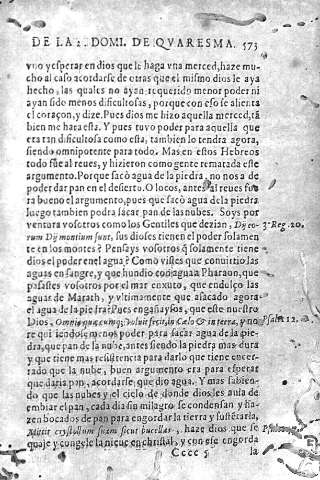 DE LA 2. DOMI. DE QVARESMA. 573
vno y esperar en dios que le haga vna merced, haze mu-
cho al caso acordarse de otras que el mismo dios le aya
hecho, las quales no ayan requerido menor poder ni
ayan sido menos dificultosas, porque con eso se alienta
el coraçon, y dize. Pues dios me hizo aquella merced, tā
bien me hara esta. Y pues tuvo poder para aquella que
era tan dificultosa como esta, tambien lo tendra agora,
siendo omnipotente para todo. Mas en estos Hebreos
todo fue al reues, y hizieron como gente rematada este
argumento. Porque sacò agua de la piedra, no nos a de
poder dar pan en el desierto. O locos, antes al reues fue
ra bueno el argumento, pues que sacò agua de la piedra
luego tambien podra sacar pan de las nubes. Soys por
ventura vosotros como los Gentiles que dezian, Dij eo- 3. Reg. 20.
rum Dij montium sunt, sus dioses tienen el poder solamen
te en los montes? Pensays vosotros q̃ solamente tiene
dios el poder en el agua? Como visses que conuirtio las
aguas en sangre, y que hundio con agua a Pharaon, que
pasastes vosotros por el mar enxuto, que endulço las
aguas de Marath, y vltimamente que a sacado agora
el agua de la piedra? Pues engañaysos, que este nuestro
Dios, Omnia quæcumq; voluit fecit, in Cælo & in terra, y no Psalm.
re qui siendo menos poder para sacar agua de la pie-
dra, que pan de la nube, antes siendo la piedra mas dura
y que tiene mas resistencia para darlo que tiene encer-
rado que la nube, buen argumento era para esperar
que daria pan, acordarse que dio agua. Y mas sabien-
do que las nubes y el cielo de donde dios les auia de
embiar el pan, cada dia sin milagro se condensan y ha-
zen bocados de pan para engordar la tierra y fustētarla,
Mittit crystallum suam sicut buccellas, haze dios que se
quaje y congele la nieue en christal, y con ese engorda
Cccc 5 la